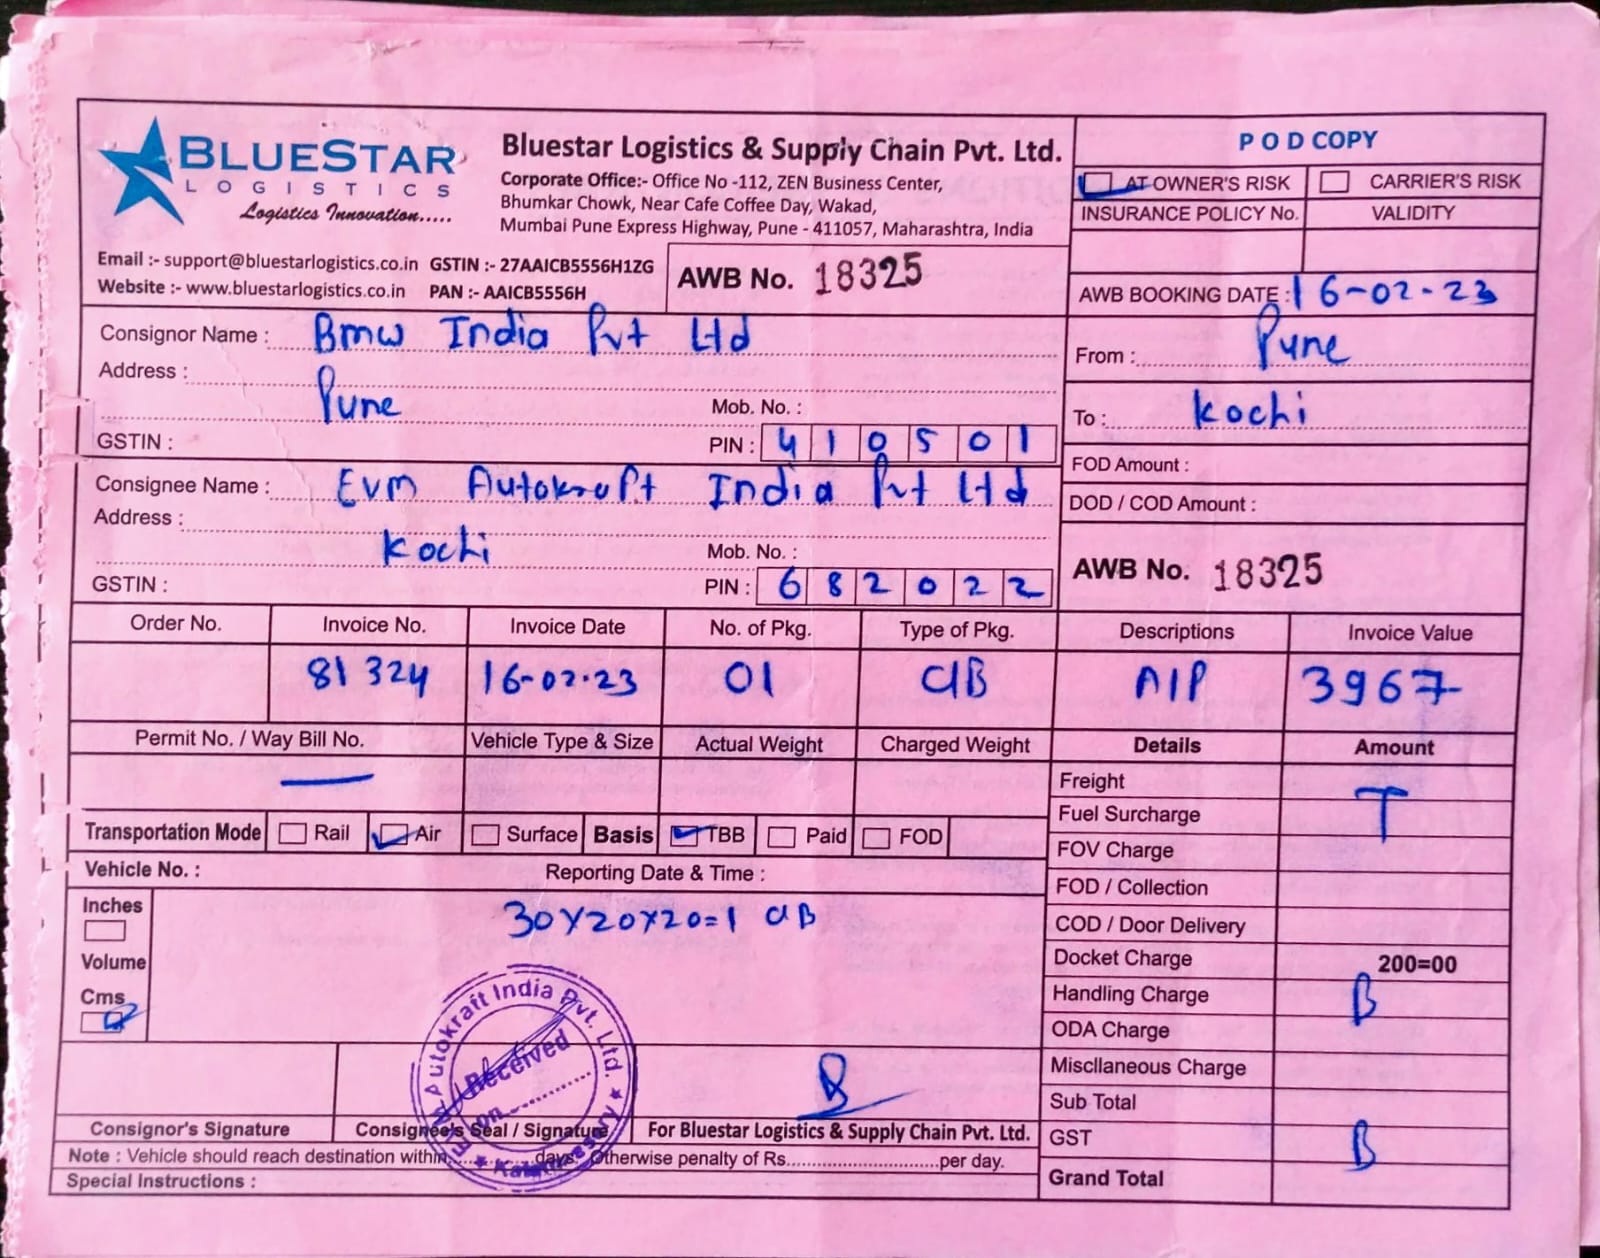 BLUESTAR
LOGISTICS
Logistics Innovation.....
Bluestar Logistics & Supply Chain Pvt. Ltd.
Corporate Office:- Office No -112, ZEN Business Center,
Bhumkar Chowk, Near Cafe Coffee Day, Wakad,
Mumbai Pune Express Highway, Pune - 411057, Maharashtra, India
Email :- support@bluestarlogistics.co.in GSTIN :- 27AAICB5556H1ZG
Website :- www.bluestarlogistics.co.in PAN :- AAICB5556H
AWB No. 18325
POD COPY
AT OWNER'S RISK CARRIER'S RISK
INSURANCE POLICY No. VALIDITY
AWB BOOKING DATE : 16-02-23
Consignor Name : Bmw India Pvt Ltd
Address :
Pune Mob. No. :
GSTIN : PIN : 410501
From : Pune
To : Kochi
Consignee Name : Evm Autokraft India Pvt Ltd
Address :
Kochi Mob. No. :
GSTIN : PIN : 682022
FOD Amount :
DOD / COD Amount :
AWB No. 18325
Order No. Invoice No. Invoice Date No. of Pkg. Type of Pkg. Descriptions Invoice Value
81324 16-02-23 01 C/B A/P 3967
Permit No. / Way Bill No. Vehicle Type & Size Actual Weight Charged Weight Details Amount
Freight
Fuel Surcharge T
FOV Charge
FOD / Collection
COD / Door Delivery
Docket Charge 200=00
Handling Charge B
ODA Charge
Miscllaneous Charge
Sub Total
GST B
Grand Total
Transportation Mode Rail Air Surface Basis TBB Paid FOD
Vehicle No. : Reporting Date & Time :
Inches
Volume
Cms
30x20x20=1 C/B
EVM Autokraft India Pvt. Ltd.
Received
on
Kalamassery
Consignor's Signature Consignee's Seal / Signature For Bluestar Logistics & Supply Chain Pvt. Ltd.
Note : Vehicle should reach destination within..............days. Otherwise penalty of Rs..............................per day.
Special Instructions :